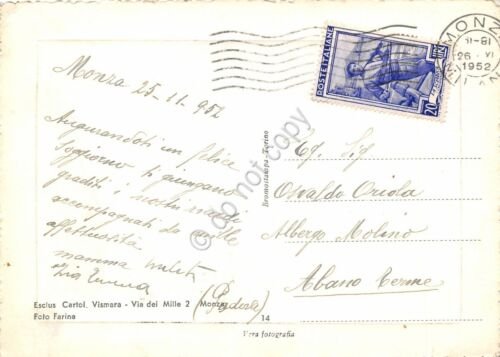 MONZA
26 VI
1952
MILANO
POSTE ITALIANE
20
Monza 25-11-952
Augurandoti un felice
soggiorno ti giungano
graditi i nostri saluti
accompagnati da mille
affettuosità
mamma
Zia
Eg. Sig
Osvaldo Oriola
Albergo Molino
Abano Terme
(Padova)
Bromostampa - Torino
Esclus Cartol. Vismara - Via dei Mille 2 Monza
Foto Farina
14
Vera fotografia
do not copy